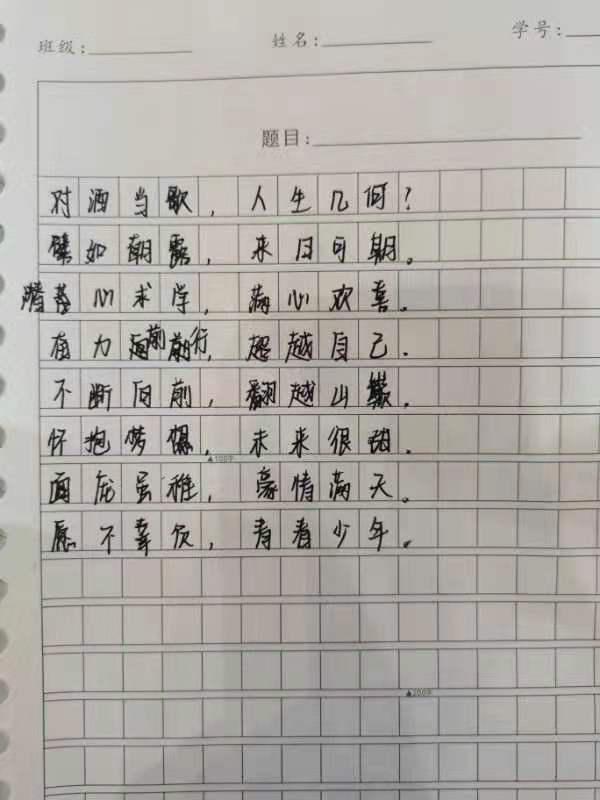 班级: 姓名: 学号:
题目:
对酒当歌，人生几何?
譬如朝露，来日可期。
心求学，满心欢喜。
有力前行，超越自己.
不断向前，翻越山.
怀抱梦想，未来很甜.
面庞虽稚，豪情满天。
愿不辜负，青春少年。
▲100字
▲200字